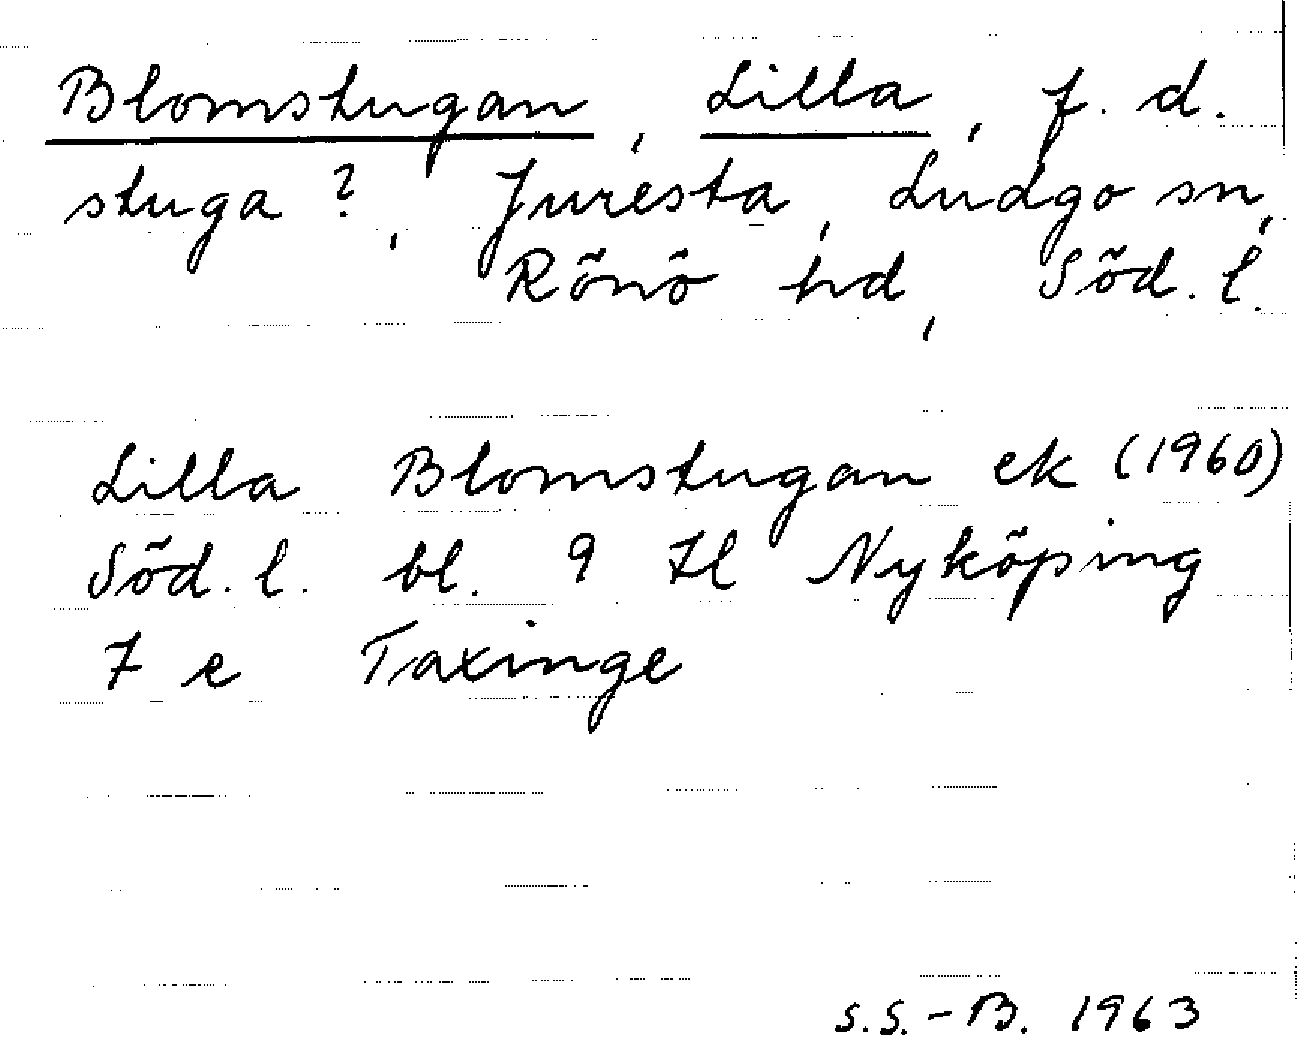 Blomstugan, Lilla, f. d.
stuga?, Juresta, Ludgo sn,
Rönö hd, Söd. l.
Lilla Blomstugan ek (1960)
Söd. l. bl. 9 H Nyköping
7 e Taxinge
S.S.-B. 1963